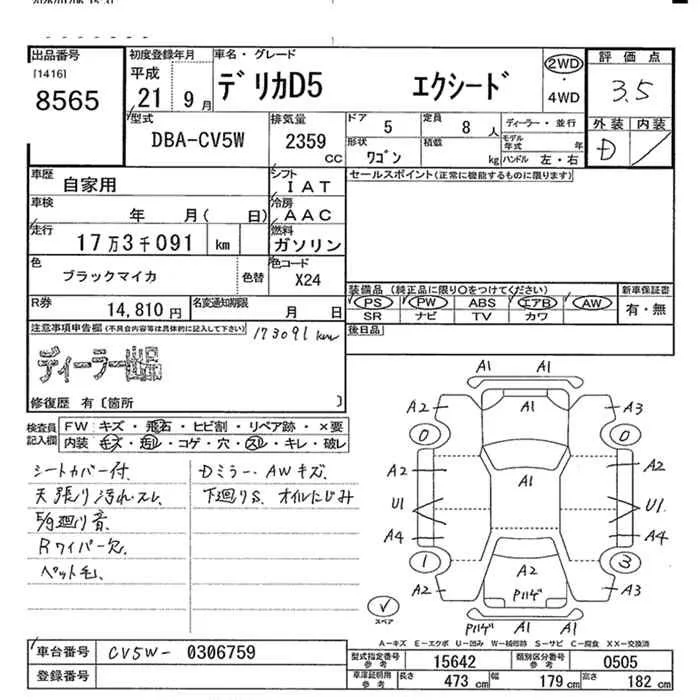 出品番号
[1416]
8565
初度登録年月
平成
21 9月
車名・グレード
デリカD5 エクシード
2WD
・
4WD
評価点
3.5
外装 内装
D
型式
DBA-CV5W
排気量
2359
CC
ドア
5
定員
8 人
形状
ワゴン
積載
kg
ディーラー・並行
モデル年式 年
ハンドル 左・右
車歴
自家用
シフト
IAT
セールスポイント(正常に機能するものに限ります)
車検
年 月( 日)
冷房
AAC
走行
17万3千091 km
燃料
ガソリン
色
ブラックマイカ
色替
色コード
X24
装備品 (純正品に限り○をつけてください)
PS PW ABS エアB AW
SR ナビ TV カワ
新車保証書
有・無
R券
14,810円
名変通知期限
月 日
後日品
注意事項申告欄(不具合内容等は具体的に記入して下さい)
173091km
ディーラー出品
修復歴 有〔箇所 〕
検査員記入欄
FW キズ・飛石・ヒビ割・リペア跡・×要
内装 キズ・汚れ・コゲ・穴・スレ・キレ・破レ
シートカバー付
天張り汚れ・スレ
廻り音
Rワイパー欠
ペット毛
Dミラー・AWキズ
下廻りS オイルにじみ
A1
A1
A2
A3
0
0
A2
A1
A2
U1
U1
A4
A4
1
3
A2
A2
A3
Pハゲ
Pハゲ
A1
スペア
A-キズ E-エクボ U-凹み W-補修跡 S-サビ C-腐食 XX-交換済
車台番号
CV5W- 0306759
登録番号
型式指定番号
参考
15642
類別区分番号
参考
0505
車庫証明用
参考
長さ
473 cm
幅
179 cm
高さ
182 cm